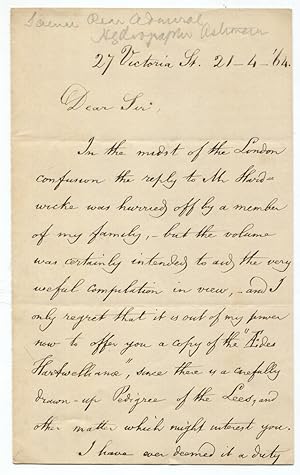 Rear Admiral
Hydrographer
27 Victoria St. 21-4-'64.
Dear Sir,
In the midst of the London
confusion the reply to Mr Hard-
wicke was hurried off by a member
of my family, - but the volume
was certainly intended to aid the very
useful compilation in view, - and I
only regret that it is out of my power
now to offer you a copy of the "Ædes
Hartwellianæ", since there is a carefully
drawn-up Pedigree of the Lees, and
other matter which might interest you.
I have ever deemed it a duty